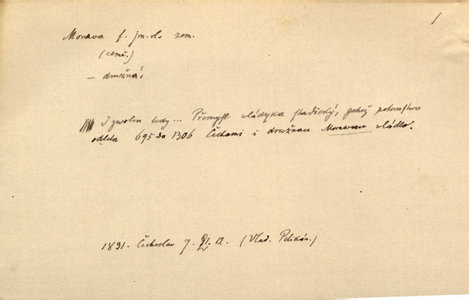 1
Morava f. jm. vl. zem.
(země.)
– družná;
Izvolen tedy... Přemysl vládyka stadický, jehož potomstvo
od léta 695 do 1306 Čechami i družnau Moravau vládlo.
1831. Čechoslav 7. 12. (Vlad. Pelikán.)